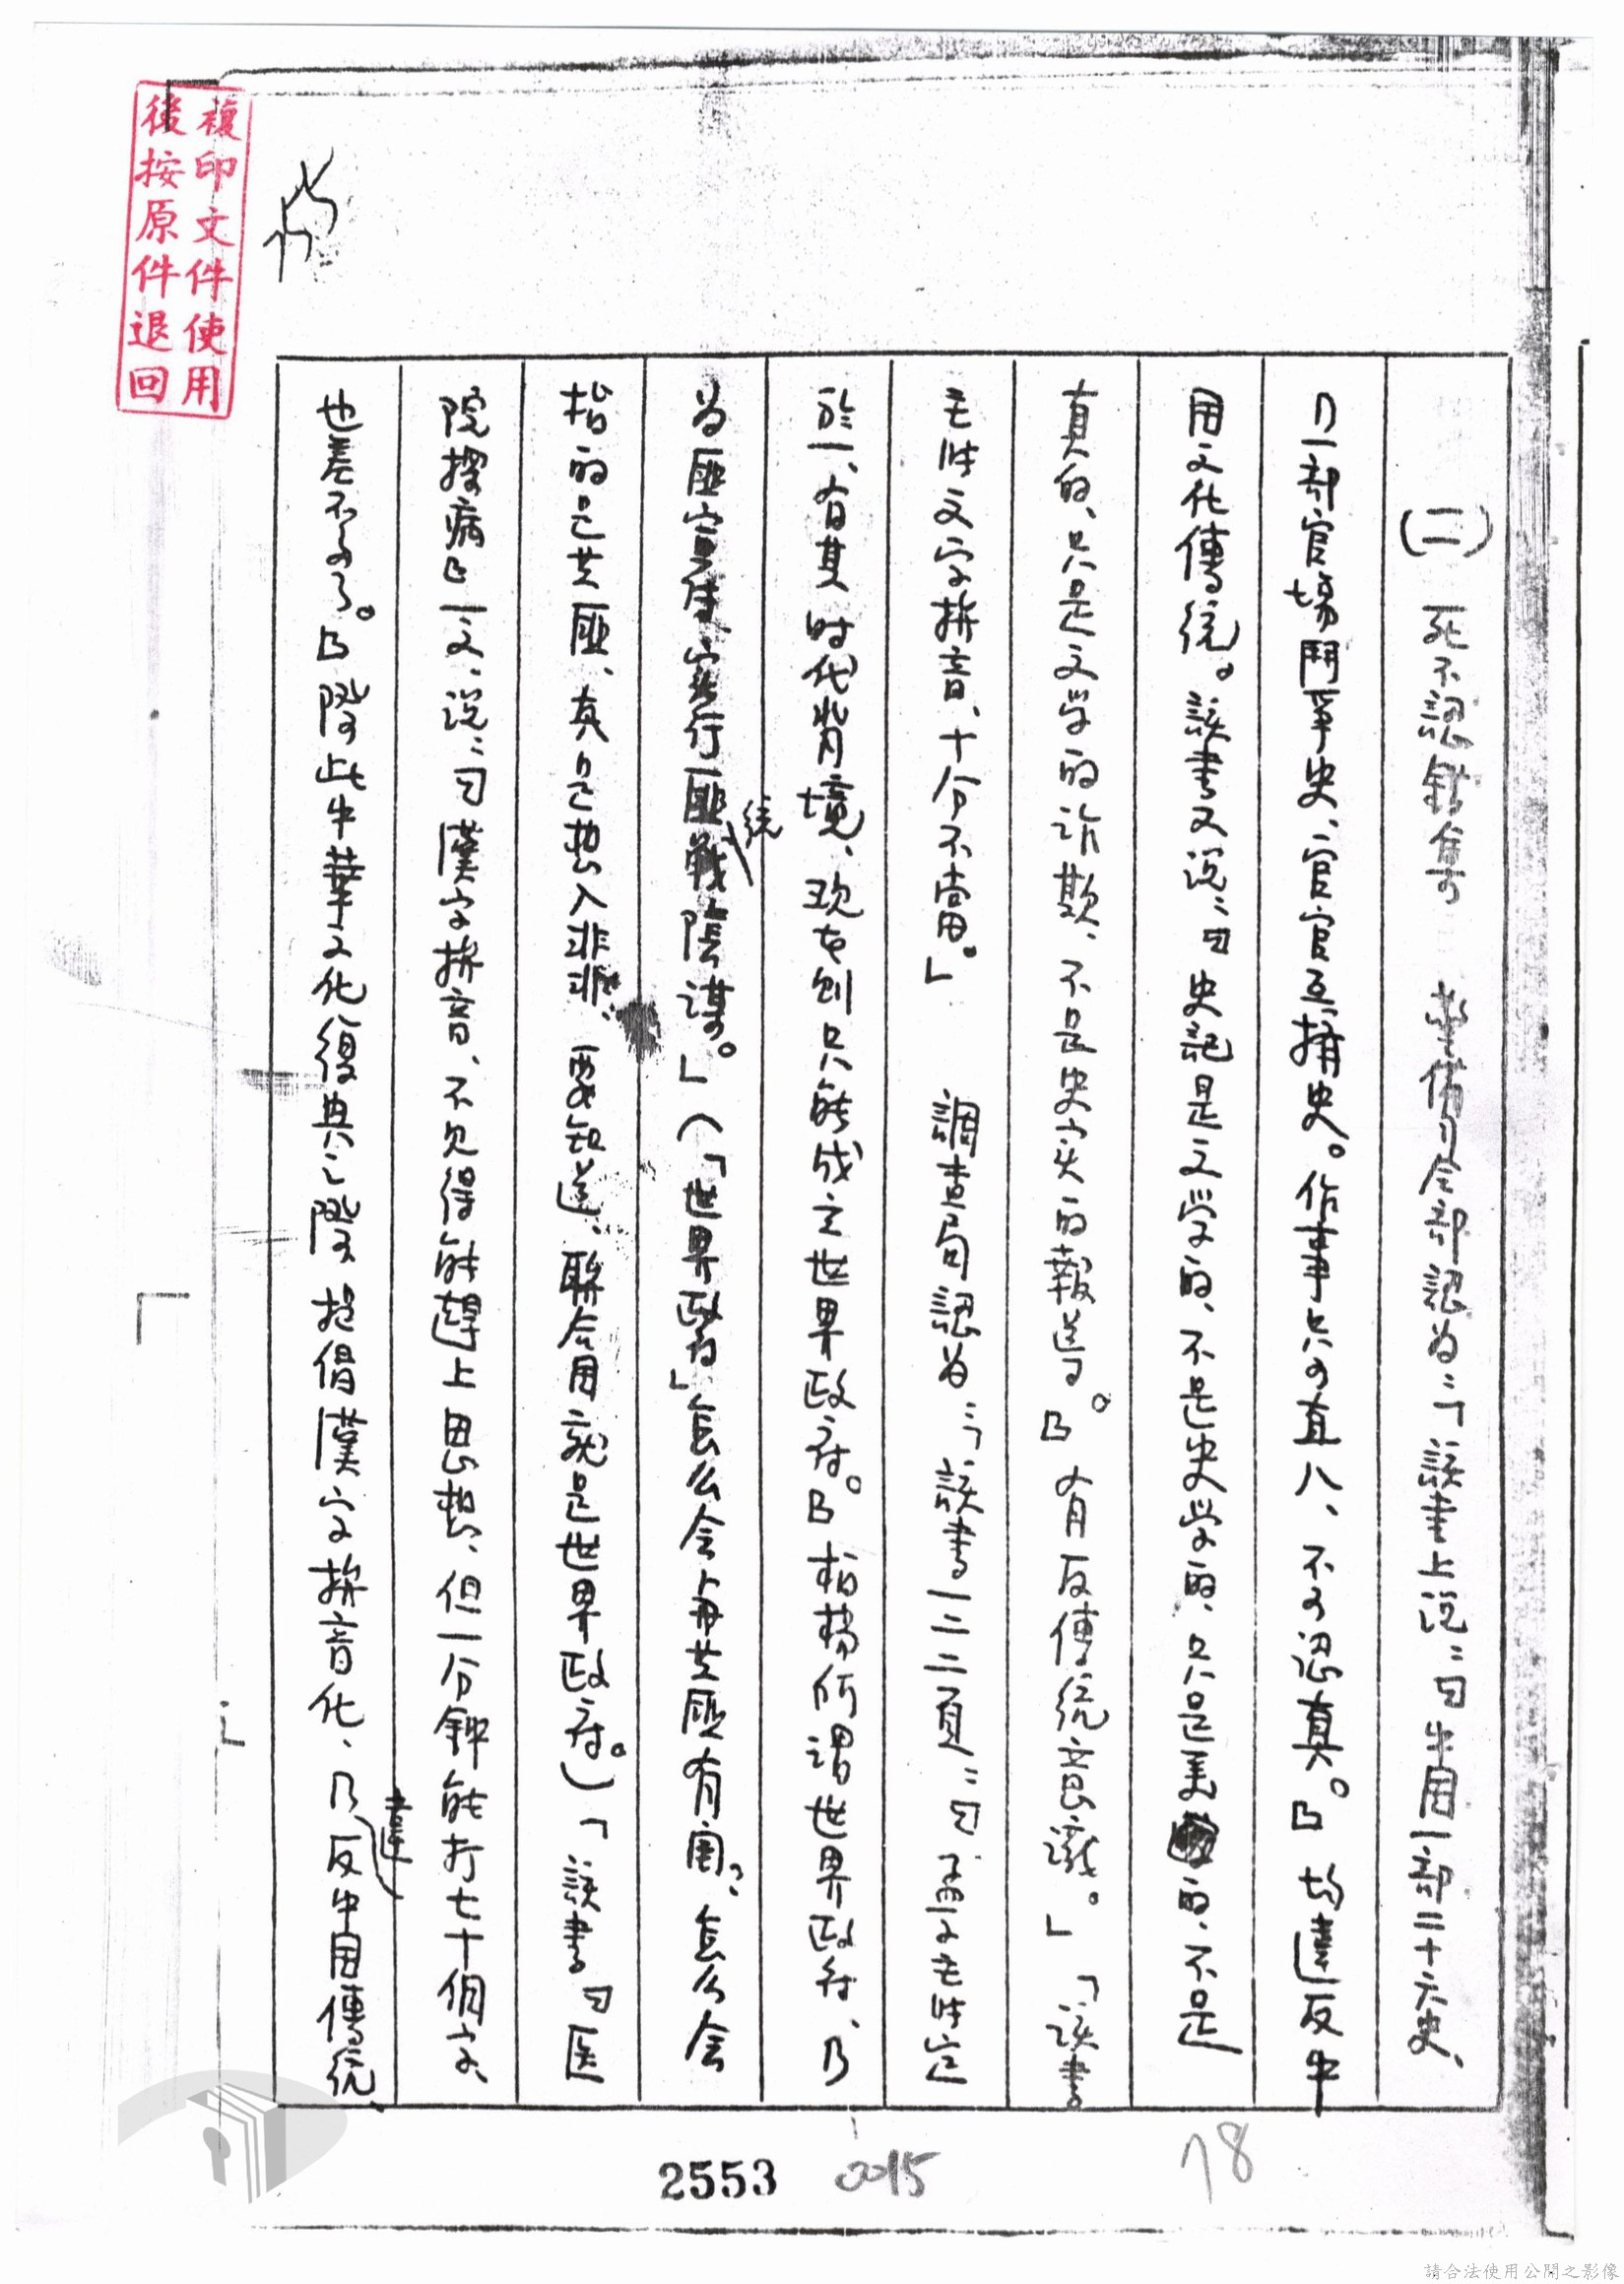 複印文件使用
後按原件退回
(二) 死不認錯集 警備司令部認為：「該書上說：『中国一部二十六史、
一部官場鬥爭史、官官互捕史。作事只可直八、不可認真。』均違反中
国文化傳統。該書又說：『史記是文学的、不是史学的、只是美的、不是
真的、只是文学的詐欺、不是史实的報導。』有反傳統意識。」「該書
主张文字拼音、十分不當。」 調查局認為：「該書一二二頁：『孟子主张定
於一、有其时代背境、现在則只能成立世界政府。』柏楊所謂世界政府、乃
為匪宣传、实行匪統戰陰謀。」(「世界政府」怎么会与共匪有関？怎么会
指的是共匪、真是想入非非、要知道、聯合国就是世界政府。)「該書『医
院探病』一文、说：『漢字拼音、不见得能趕上思想、但一分鐘能打七十個字、
也差不多了。』際此中華文化復興之際、提倡漢字拼音化、乃違反中国傳統
2553
0015
78
請合法使用公開之影像